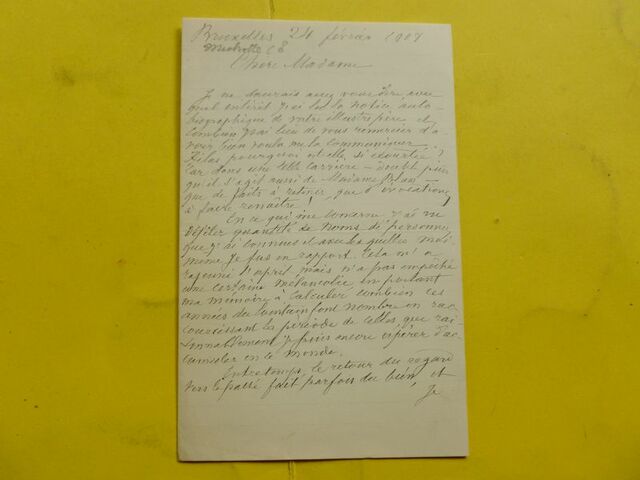 Bruxelles 24 février 1908
Chère Madame
Je ne saurais assez vous dire avec
quel intérêt j'ai lu la notice auto-
biographique de votre illustre père et
combien j'ai lieu de vous remercier d'a
voir bien voulu me la communiquer.
Hélas pourquoi est elle si écourtée ?
Car dans une telle carrière — double puis
qu'il s'agit aussi de Madame
que de faits à retenir, que d'évocations
à faire renaître !
En ce qui me concerne j'ai vu
défiler quantité de noms de personnes
que j'ai connues et avec lesquelles moi-
même je fus en rapport. Cela m'a
rajeuni l'esprit mais n'a pas empêché
une certaine mélancolie en portant
ma mémoire à calculer combien ces
années du lointain font nombre en rac
courcissant la période de celles que rai
sonnablement je puis encore espérer d'ac
cumuler en ce monde.
Entretemps, le retour du regard
vers le passé fait parfois du bien, et
Je